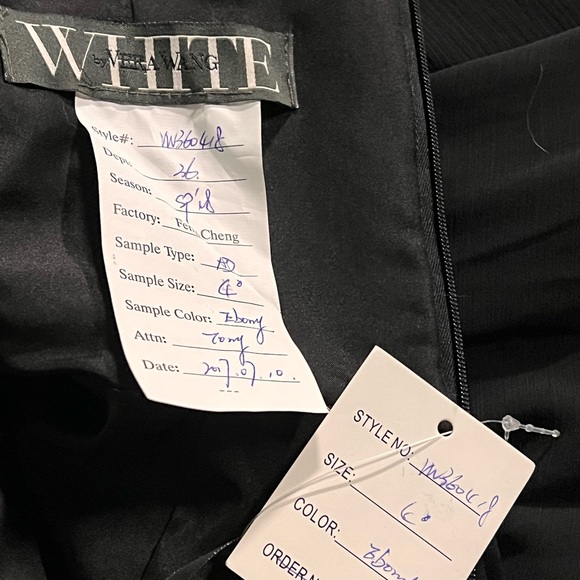 WHITE
by VERA WANG
Style#: VW360418
Dept:
26
Season: SP'18
Factory: Cheng
Sample Type:
Sample Size: 4°
Sample Color: Ebony
Attn: Tony
Date: 2017.07.10.
STYLE NO: VW360418
SIZE: 4°
COLOR: Ebony
ORDER N